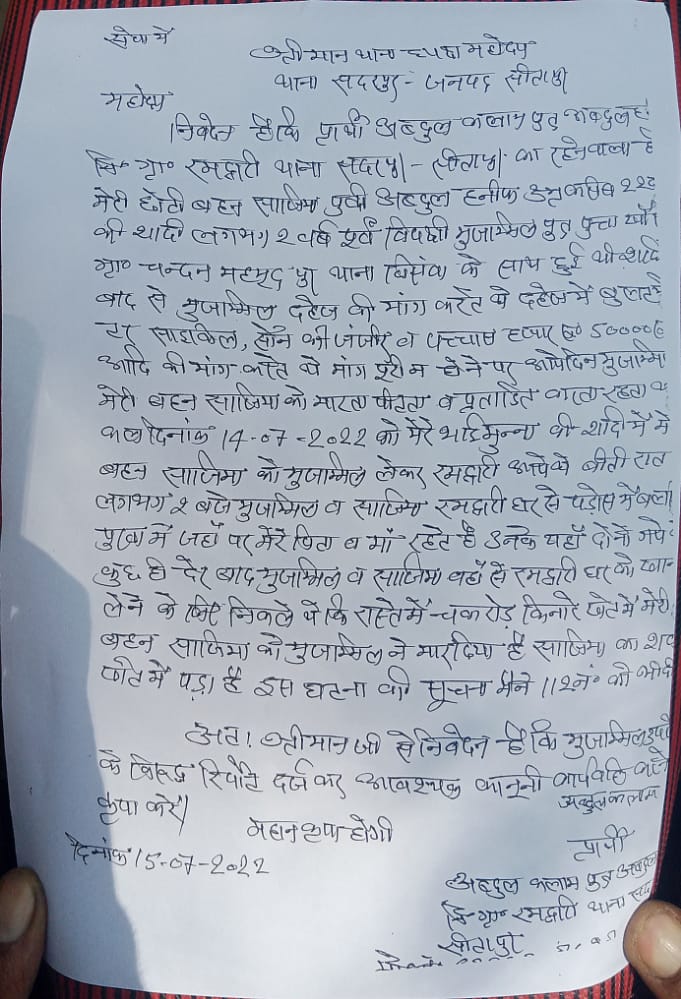 सेवा में
श्रीमान थानाध्यक्ष महोदय
थाना सदरपुर - जनपद सीतापुर
महोदय
निवेदन है कि प्रार्थी अब्दुल कलाम पुत्र अब्दुल
नि० ग्रा० रमद्वारी थाना सदरपुर - सीतापुर का रहने वाला है
मेरी छोटी बहन साजिमा पुत्री अब्दुल हनीफ उम्र करीब 22
की शादी लगभग 2 वर्ष पूर्व विपक्षी मुजाम्मिल पुत्र
ग्रा० चन्दन महमूद पुर थाना बिसंवा के साथ हुई थी शादी
बाद से मुजाम्मिल दहेज की मांग करते थे दहेज में
साइकिल, सोने की जंजीर व पच्चास हजार रु० 50000
आदि की मांग करते थे मांग पूरी न होने पर आयेदिन मुजाम्मि
मेरी बहन साजिमा को मारता पीटता व प्रताडित करता रहता था
कल दिनांक 14-07-2022 को मेरे भाई मुन्ना की शादी में मे
बहन साजिमा को मुजाम्मिल लेकर रमद्वारी आये थे बीती रात
लगभग 2 बजे मुजाम्मिल व साजिमा रमद्वारी घर से पड़ोस में
पुरवा में जहाँ पर मेरे पिता व माँ रहते है उनके यहाँ दोनों गये
कुछ ही देर बाद मुजाम्मिल व साजिमा वहाँ से रमद्वारी घर को
लेने के लिए निकले थे कि रास्ते में चकरोड़ किनारे खेत में मेरी
बहन साजिमा को मुजाम्मिल ने मार दिया है साजिमा का शव
खेत में पड़ा है इस घटना की सूचना मैने 112 नं० को भी दी
अतः श्रीमान जी से निवेदन है कि मुजाम्मिल
के विरूद्ध रिपोर्ट दर्ज कर आवश्यक कानूनी कार्यवाही करने
कृपा करें।
अब्दुल कलाम
महान कृपा होगी
दिनांक 15-07-2022
प्रार्थी
अब्दुल कलाम पुत्र अब्दुल
नि० ग्रा० रमद्वारी थाना सदर
सीतापुर